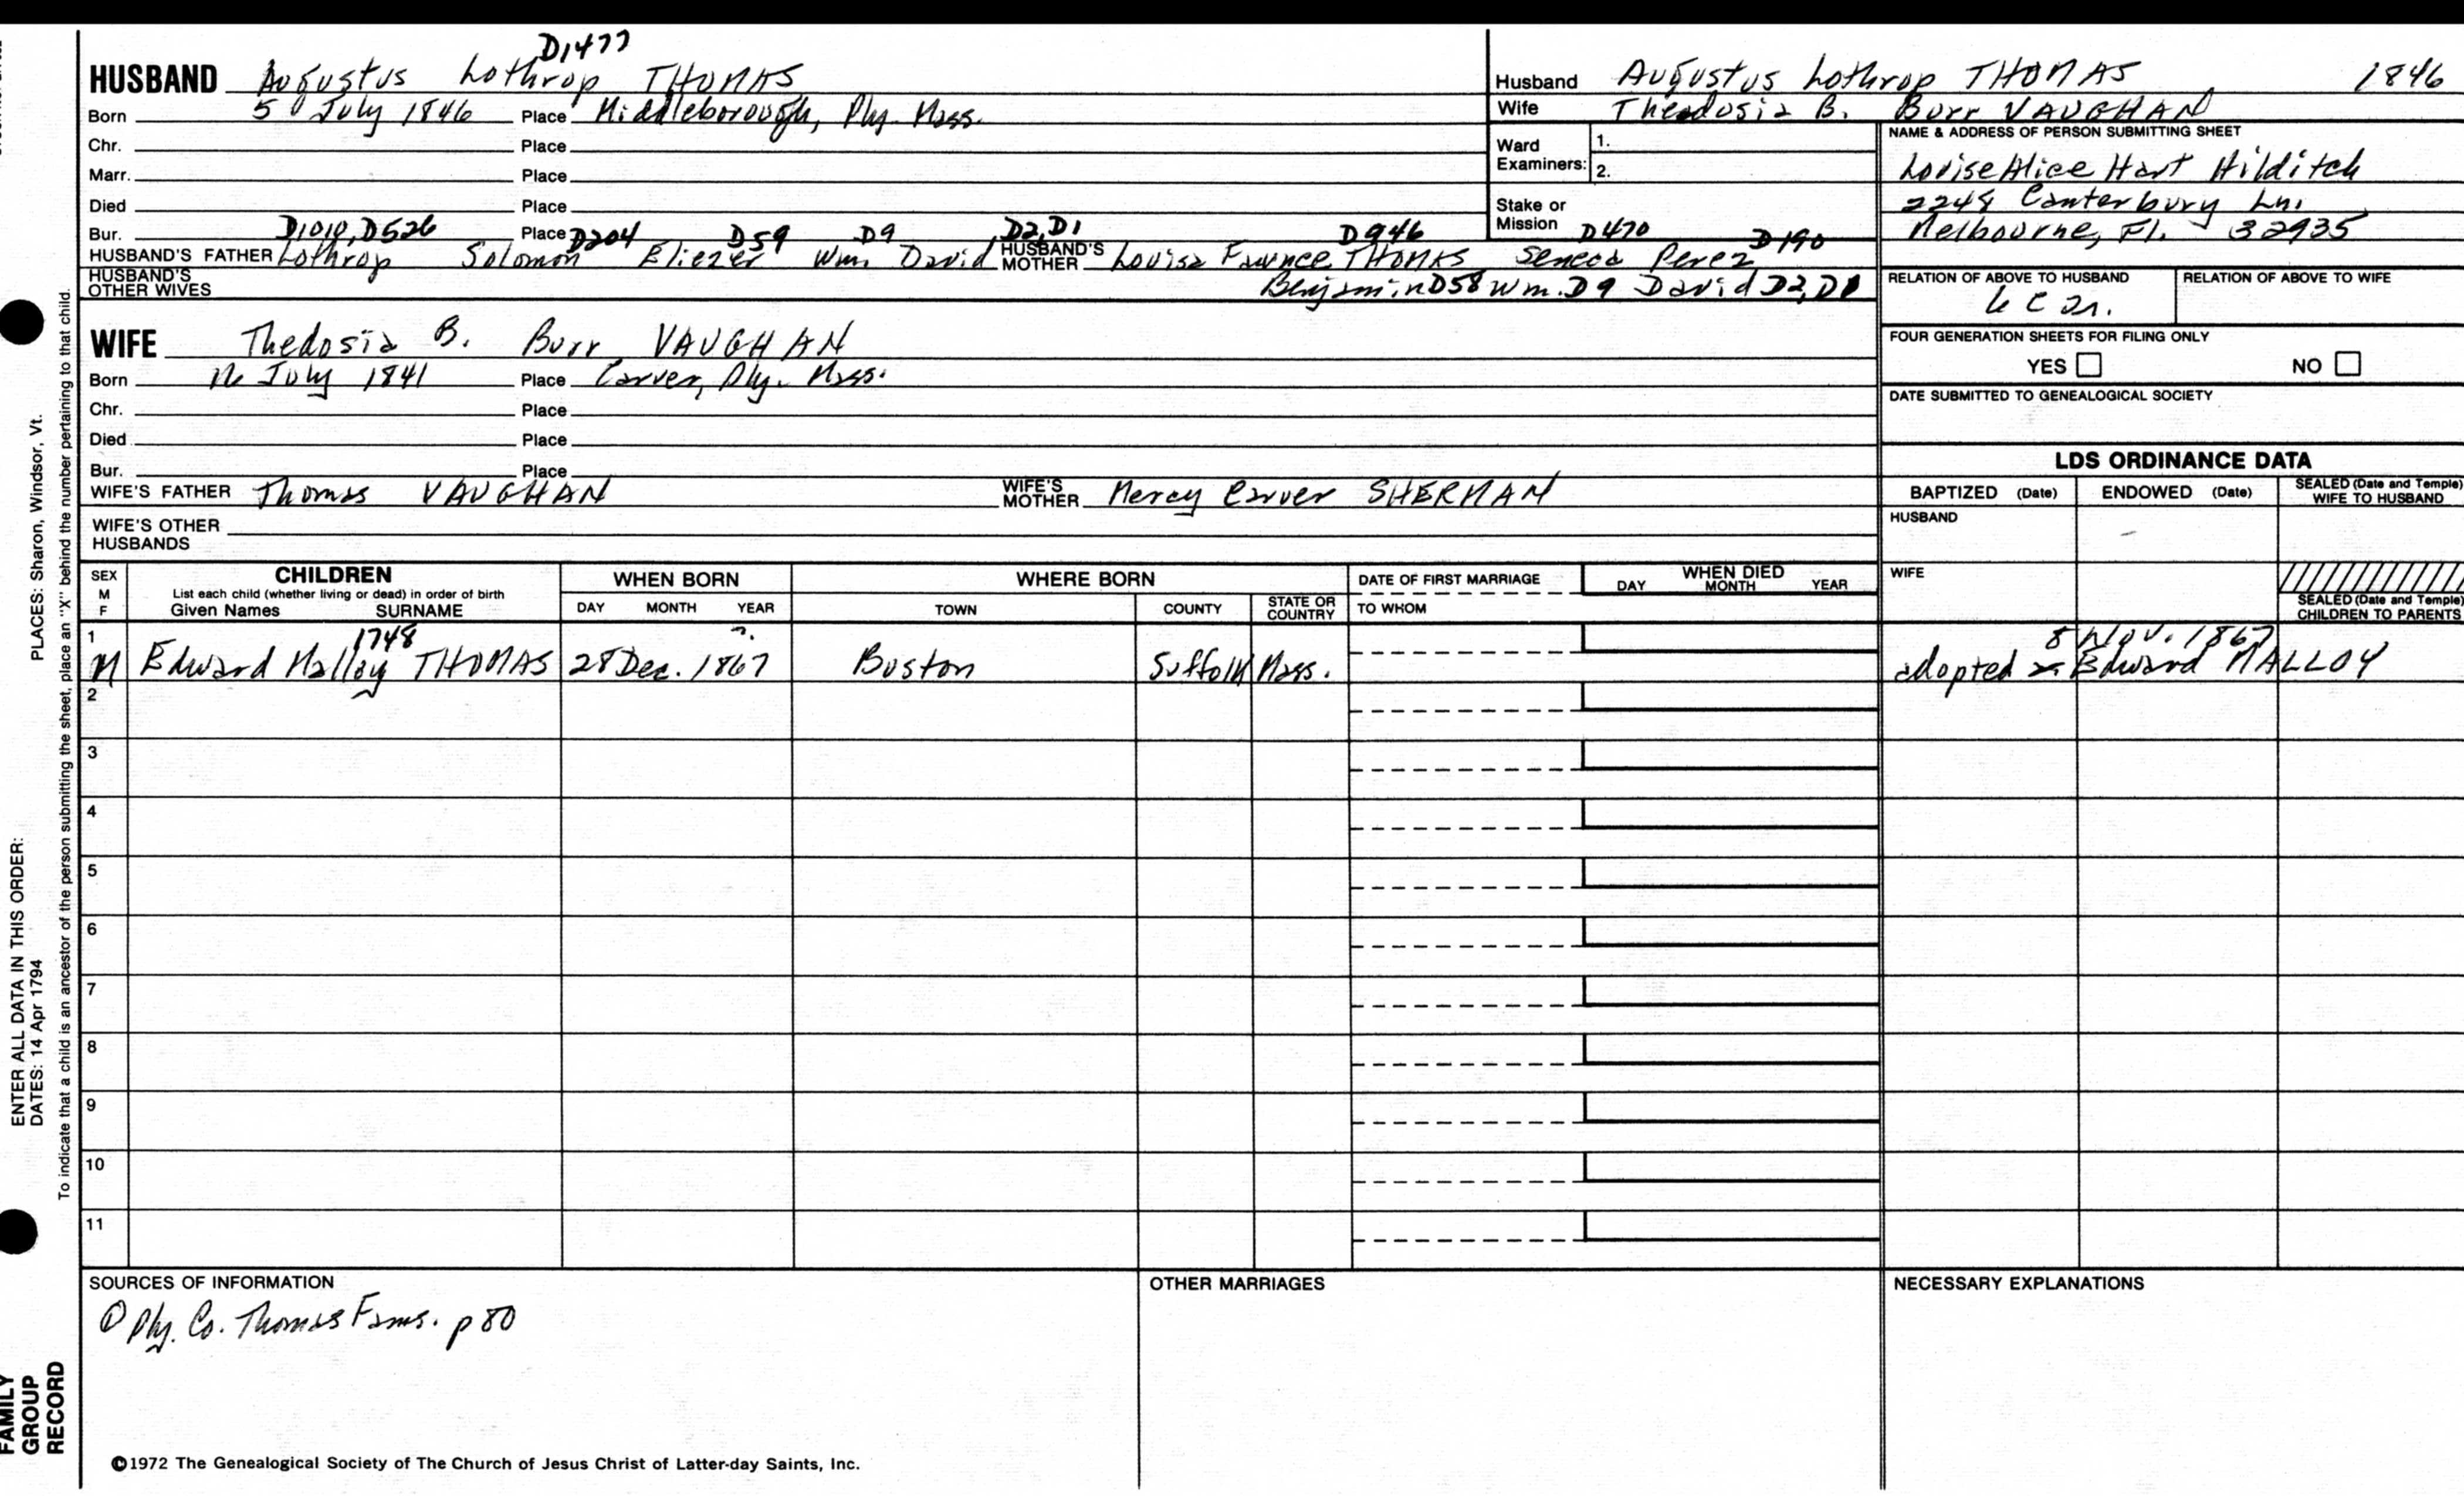 D1477
HUSBAND Augustus Lothrop THOMAS
Born 5 July 1846 Place Middleborough, Ply. Mass.
Chr. Place
Marr. Place
Died Place
D1010, D526 D204 D59 D9 D2, D1 D946 D470 D190
Bur. Place
HUSBAND'S FATHER Lothrop Solomon Eliezer Wm. David HUSBAND'S MOTHER Louisa Faunce THOMAS Seneca Perez
HUSBAND'S OTHER WIVES Benjamin D58 Wm. D9 David D2, D1
WIFE Thedosia B. Burr VAUGHAN
Born 12 July 1841 Place Carver, Ply. Mass.
Chr. Place
Died Place
Bur. Place
WIFE'S FATHER Thomas VAUGHAN WIFE'S MOTHER Mercy Carver SHERMAN
WIFE'S OTHER HUSBANDS
Husband Augustus Lothrop THOMAS 1846
Wife Thedosia B. Burr VAUGHAN
Ward Examiners: 1.
2.
Stake or Mission
NAME & ADDRESS OF PERSON SUBMITTING SHEET
Louise Alice Hart Hilditch
2248 Canterbury Ln.
Melbourne, Fl. 32935
RELATION OF ABOVE TO HUSBAND RELATION OF ABOVE TO WIFE
FOUR GENERATION SHEETS FOR FILING ONLY
YES NO
DATE SUBMITTED TO GENEALOGICAL SOCIETY
LDS ORDINANCE DATA
BAPTIZED (Date) ENDOWED (Date) SEALED (Date and Temple) WIFE TO HUSBAND
HUSBAND
WIFE
SEALED (Date and Temple) CHILDREN TO PARENTS
SEX M F CHILDREN WHEN BORN WHERE BORN DATE OF FIRST MARRIAGE WHEN DIED
List each child (whether living or dead) in order of birth DAY MONTH YEAR
Given Names SURNAME DAY MONTH YEAR TOWN COUNTY STATE OR COUNTRY TO WHOM
1 1748 ?. 8 Nov. 1867
M Edward Malloy THOMAS 28 Dec. 1867 Boston Suffolk Mass. adopted Edward MALLOY
2
3
4
5
6
7
8
9
10
11
SOURCES OF INFORMATION OTHER MARRIAGES NECESSARY EXPLANATIONS
① Ply. Co. Thomas Fams. p 80
©1972 The Genealogical Society of The Church of Jesus Christ of Latter-day Saints, Inc.
FAMILY GROUP RECORD
ENTER ALL DATA IN THIS ORDER:
DATES: 14 Apr 1794
PLACES: Sharon, Windsor, Vt.
To indicate that a child is an ancestor of the person submitting the sheet, place an "X" behind the number pertaining to that child.